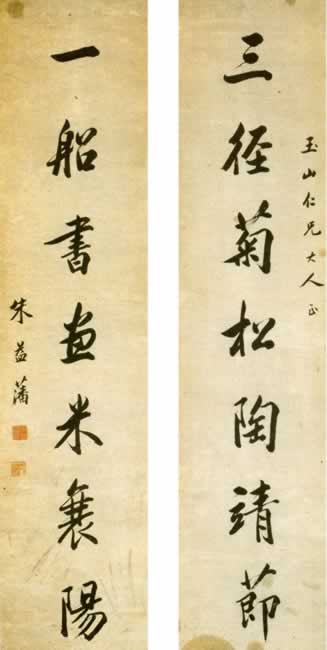 玉山仁兄大人正
三徑菊松陶靖節
一船書畫米襄陽
朱益藩